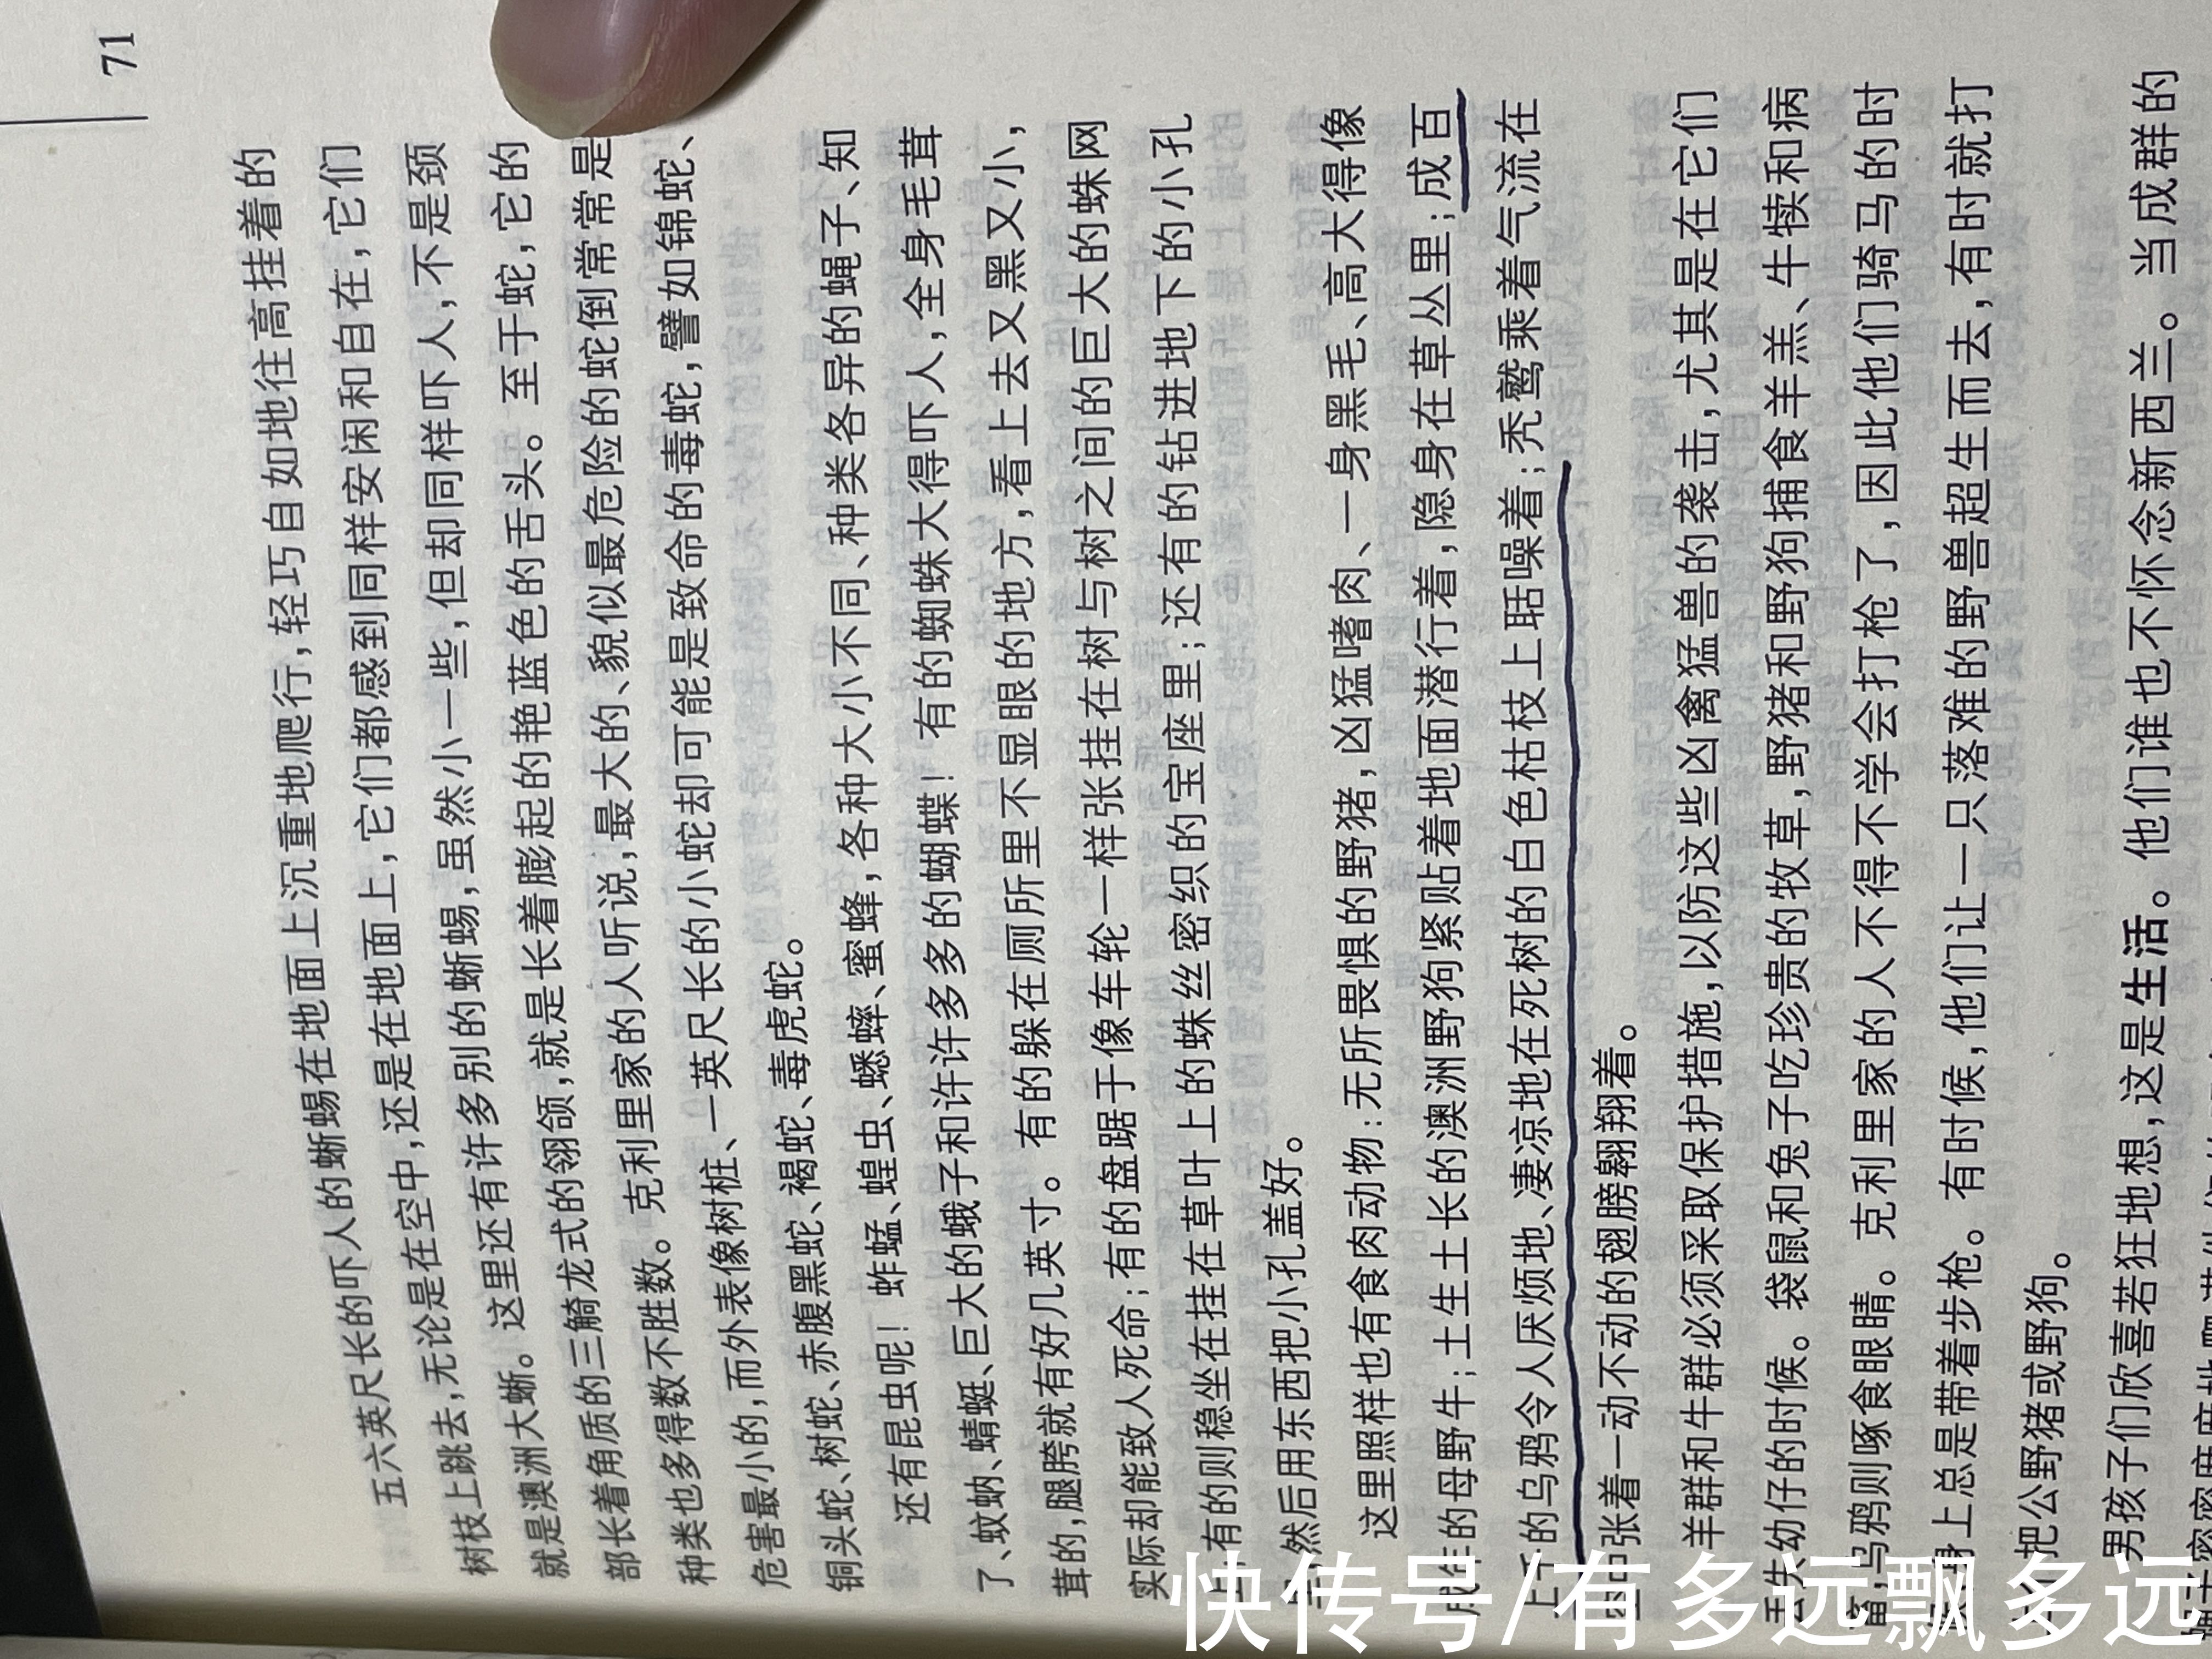 71
五六英尺长的吓人的蜥蜴在地面上沉重地爬行，轻巧自如地往高挂着的
树枝上跳去，无论是在空中，还是在地面上，它们都感到同样安闲和自在，它们
就是澳洲大蜥。这里还有许多别的蜥蜴，虽然小一些，但却同样吓人，不是颈
部长着角质的三觭龙式的翎颌，就是长着膨起的艳蓝色的舌头。至于蛇，它的
种类也多得数不胜数。克利里家的人听说，最大的、貌似最危险的蛇倒常常是
危害最小的，而外表像树桩、一英尺长的小蛇却可能是致命的毒蛇，譬如锦蛇、
铜头蛇、树蛇、赤腹黑蛇、褐蛇、毒虎蛇。
还有昆虫呢！蚱蜢、蝗虫、蟋蟀、蜜蜂，各种大小不同、种类各异的蝇子、知
了、蚊蚋、蜻蜓、巨大的蛾子和许许多多的蝴蝶！有的蜘蛛大得吓人，全身毛茸
茸的，腿胯就有好几英寸。有的躲在厕所里不显眼的地方，看上去又黑又小，
实际却能致人死命；有的盘踞于像车轮一样张挂在树与树之间的巨大的蛛网
上；有的则稳坐在挂在草叶上的蛛丝密织的宝座里；还有的钻进地下的小孔
里，然后用东西把小孔盖好。
这里照样也有食肉动物：无所畏惧的野猪，凶猛嗜肉、一身黑毛、高大得像
成年的母野牛；土生土长的澳洲野狗紧贴着地面潜行着，隐身在草丛里；成百
上千的乌鸦令人厌烦地、凄凉地在死树的白色枯枝上聒噪着；秃鹫乘着气流在
空中张着一动不动的翅膀翱翔着。
羊群和牛群必须采取保护措施，以防这些凶禽猛兽的袭击，尤其是在它们
丢失幼仔的时候。袋鼠和兔子吃珍贵的牧草，野猪和野狗捕食羊羔、牛犊和病
畜，乌鸦则啄食眼睛。克利里家的人不得不学会打枪了，因此他们骑马的时
候，身上总是带着步枪。有时候，他们让一只落难的野兽超生而去，有时就打
上个把公野猪或野狗。
男孩子们欣喜若狂地想，这是生活。他们谁也不怀念新西兰。当成群的
快传号/有多远飘多远